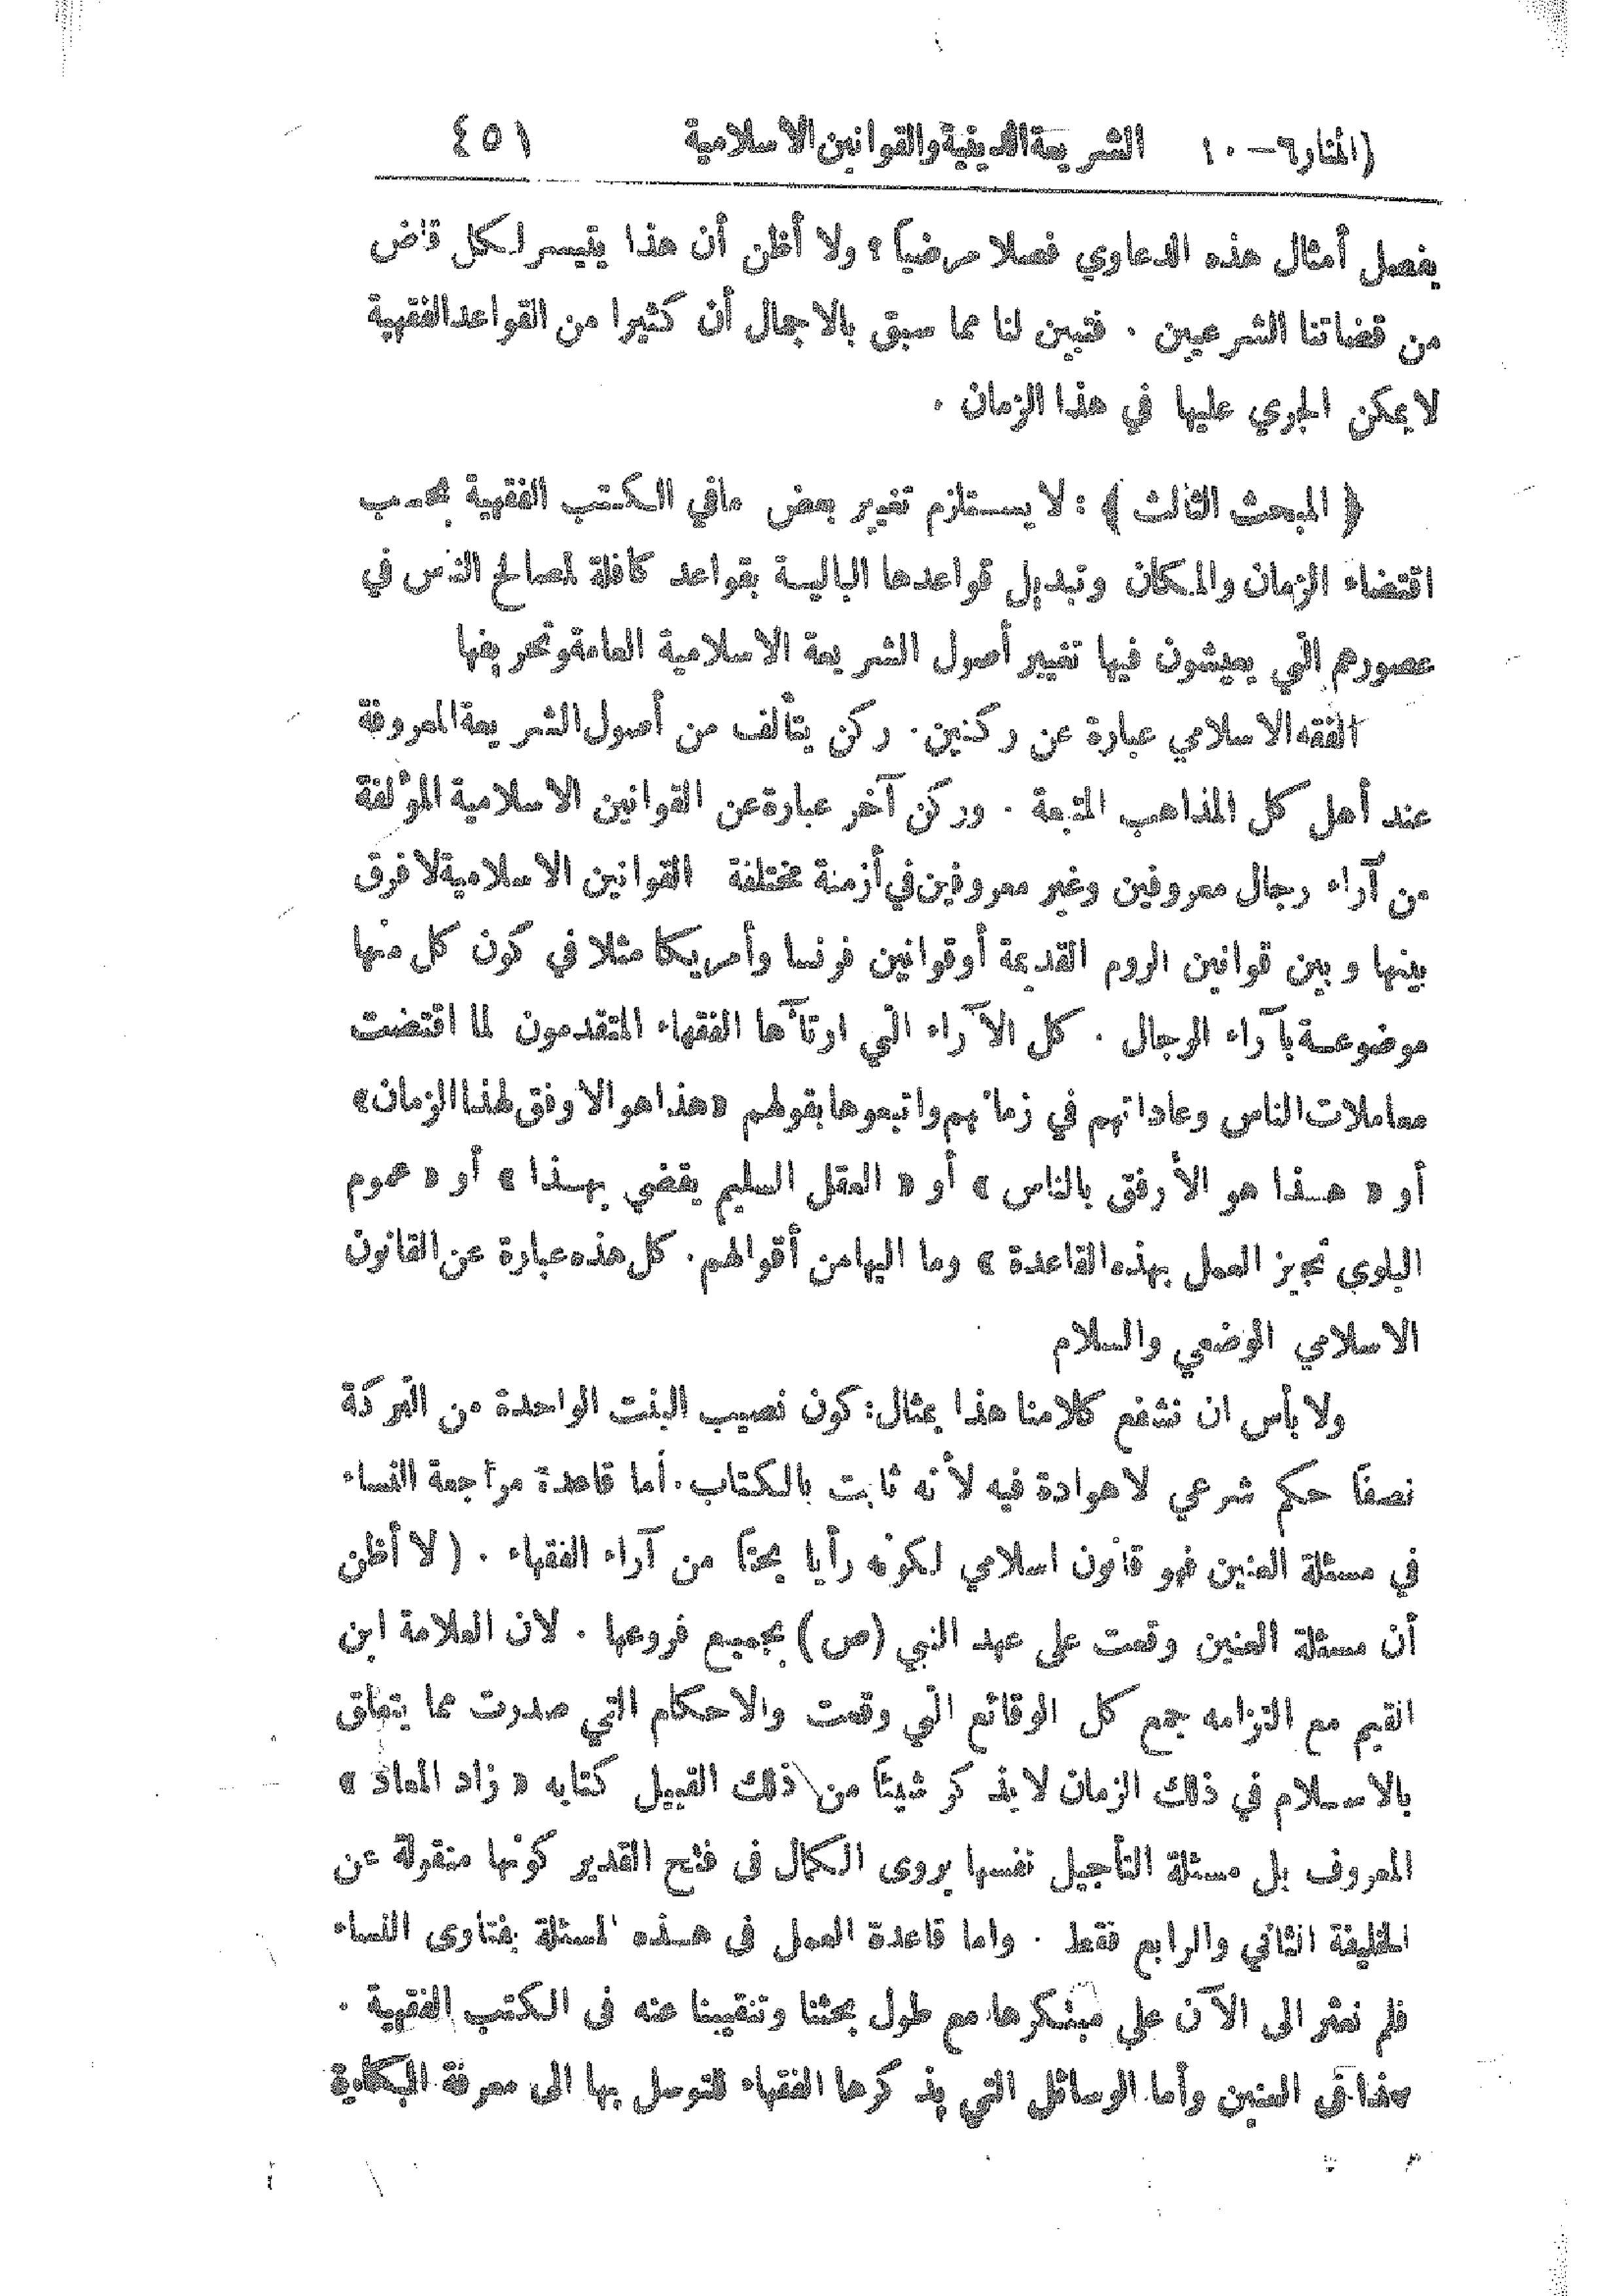 (المنار ٦ – ١٠ الشريعة الدينية والقوانين الاسلامية ٤٥١
يفصل أمثال هذه الدعاوي فصلا مرضياً ؟ ولا أظن أن هذا يتيسر لكل قاض
من قضاتنا الشرعيين . فتبين لنا مما سبق بالاجمال أن كثيرا من القواعد الفقهية
لا يمكن الجري عليها في هذا الزمان .
﴿ المبحث الثالث ﴾ : لا يستلزم تغيير بعض مافي الكتب الفقهية بحسب
اقتضاء الزمان والمكان وتبديل قواعدها البالية بقواعد كافلة لمصالح الناس في
عصورهم التي يعيشون فيها تغيير أصول الشريعة الاسلامية العامة وتحريفها
الفقه الاسلامي عبارة عن ركنين . ركن يتألف من أصول الشريعة المعروفة
عند أهل كل المذاهب المتبعة . وركن آخر عبارة عن القوانين الاسلامية المؤلفة
من آراء رجال معروفين وغير معروفين في أزمنة مختلفة القوانين الاسلامية لا فرق
بينها وبين قوانين الروم القديمة أو قوانين فرنسا وأمريكا مثلا في كون كل منها
موضوعة بآراء الرجال . كل الآراء التي ارتآها الفقهاء المتقدمون لما اقتضت
معاملات الناس وعاداتهم في زمانهم واتبعوها بقولهم « هذا هو الاوفق لهذا الزمان »
أو « هذا هو الأرفق بالناس » أو « العقل السليم يقضي بهذا » أو « عموم
البلوى تجيز العمل بهذه القاعدة » وما اليها من أقوالهم . كل هذه عبارة عن القانون
الاسلامي الوضعي والسلام
ولا بأس ان نشفع كلامنا هذا بمثال : كون نصيب البنت الواحدة من التركة
نصفاً حكم شرعي لا هوادة فيه لأنه ثابت بالكتاب . أما قاعدة مراجعة النساء
في مسئلة العنين فهو قانون اسلامي لكونه رأيا بحتاً من آراء الفقهاء . ( لا أظن
أن مسئلة العنين وقعت على عهد النبي (ص) بجميع فروعها . لان العلامة ابن
القيم مع التزامه جمع كل الوقائع التي وقعت والاحكام التي صدرت مما يتعلق
بالاسلام في ذلك الزمان لا يذكر شيئاً من ذلك القبيل كتابه « زاد المعاد »
المعروف بل مسئلة التأجيل نفسها يروى الكمال فى فتح القدير كونها منقولة عن
الخليفة الثاني والرابع فقط . واما قاعدة العمل فى هذه المسئلة بفتاوى النساء
فلم نعثر الى الآن على مبتكرها مع طول بحثنا وتنقيبنا عنه فى الكتب الفقهية .
هذا فى العنين وأما الوسائل التي يذكرها الفقهاء للتوصل بها الى معرفة البكارة